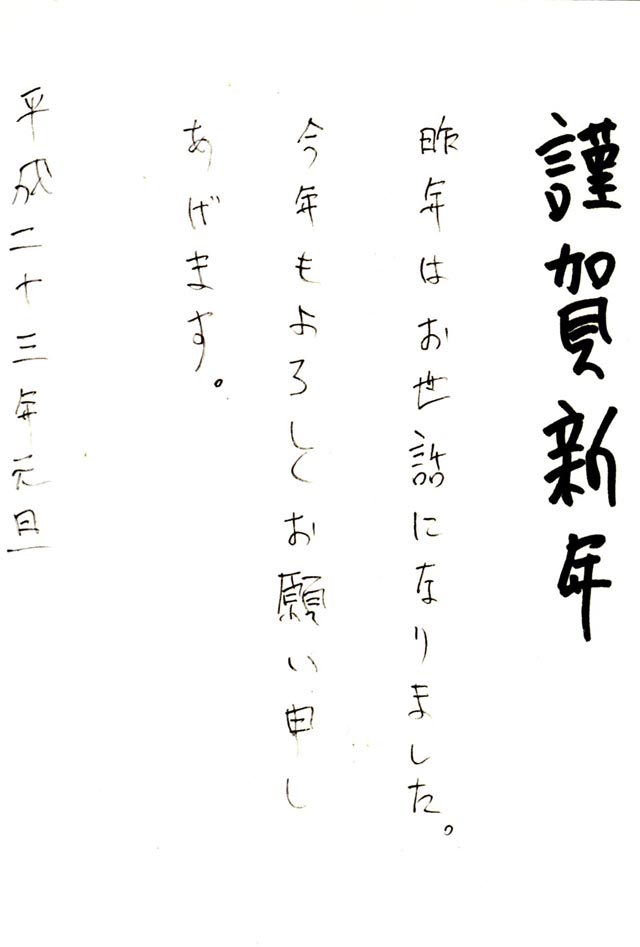 謹賀新年
昨年はお世話になりました。
今年もよろしくお願い申し
あげます。
平成二十三年元旦